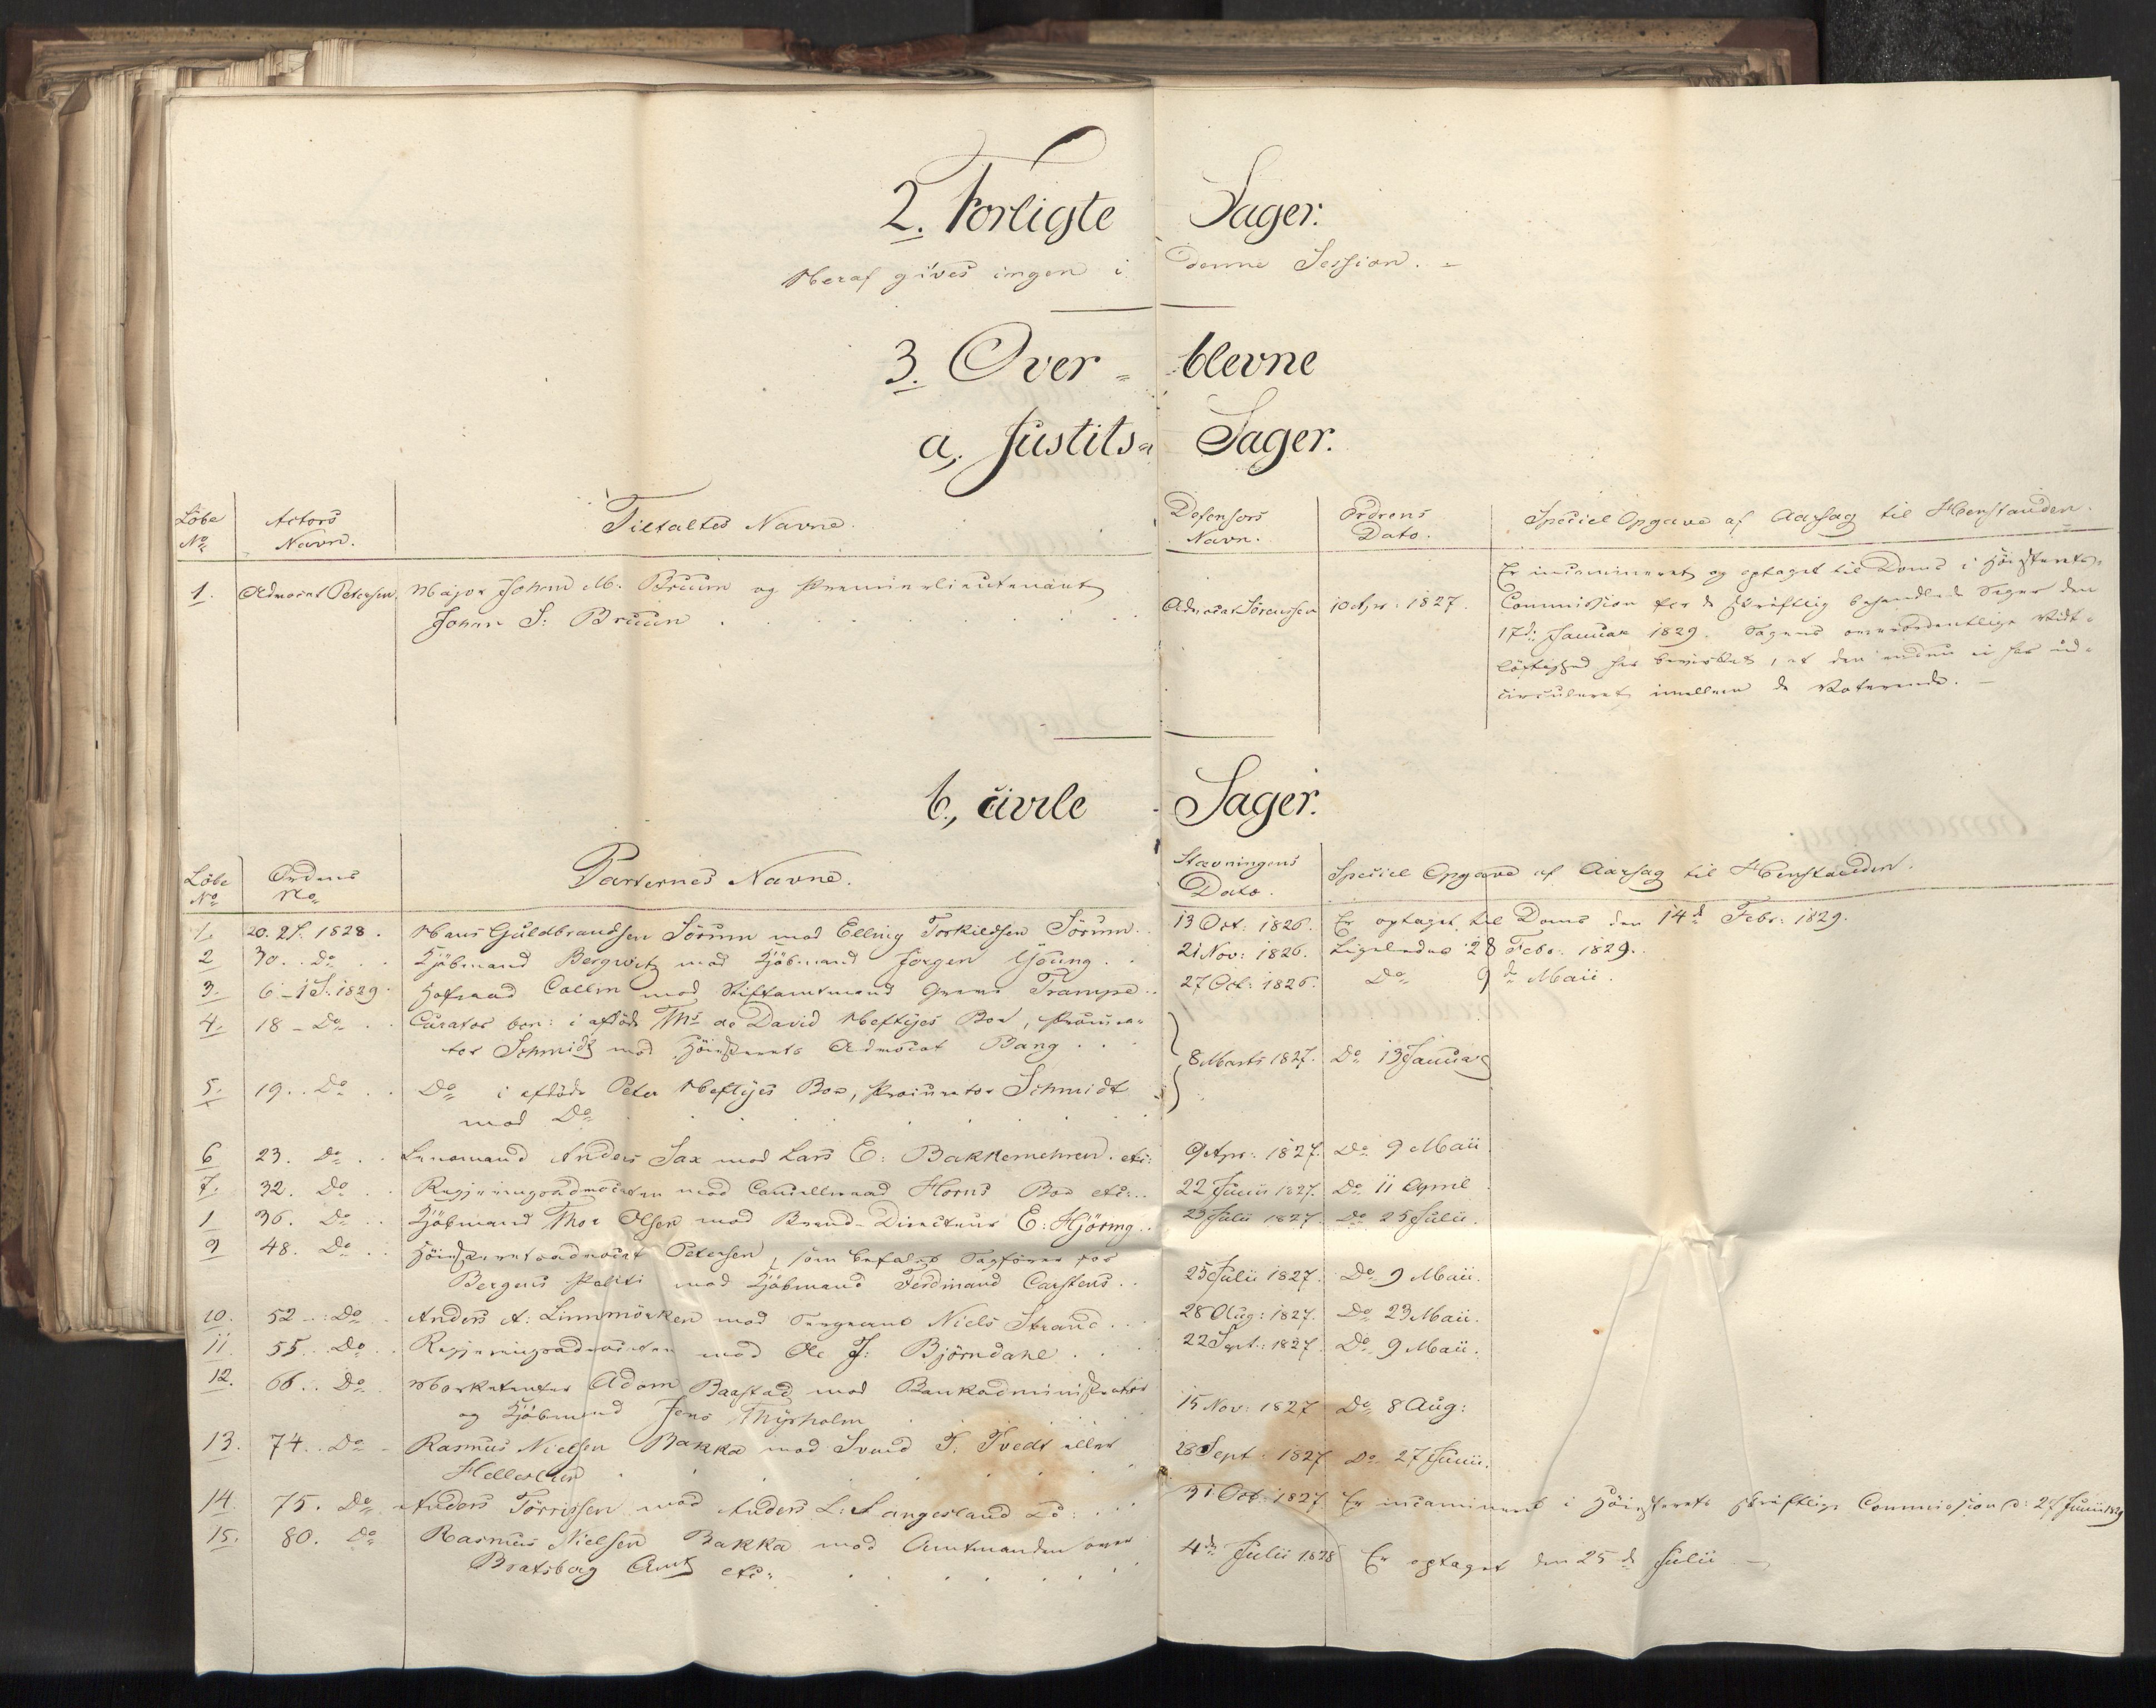 2. Forligte Sager.
Heraf gives ingen i denne Session.
3. Over- blevne
a, Justits- Sager.
Löbe No Actors Navn. Tiltaltes Navne. Defensors Navn. Ordrens Dato. Speciel Opgave af Aarsag til Henstanden.
1. Advocat Petersen. Major Johan M. Bruun og Premierlieutenant Advocat Sörenssen 10 Apr: 1827. Er incamineret og optaget til Doms i Höiesterets
Johan S: Bruun Commission for de skriftlig behandlede Sager den
17de Januar 1829. Sagens overordentlige Vidt-
löftighed har bevirket, at den endnu ei har ud-
circuleret imellem de Voterende.
b, civile Sager.
Löbe No Ordens No Parternes Navne. Stævningens Dato. Speciel Opgave af Aarsag til Henstanden.
1. 20. 2S. 1828. Hans Guldbrandsen Sörum mod Elling Torkildsen Sörum. 13 Oct: 1826. Er optaget til Doms den 14de Febr: 1829.
2 30. Do Kjöbmand Bergwitz mod Kjöbmand Jörgen Young. 21 Nov: 1826. Ligeledes 28 Febr: 1829.
3. 6-1S. 1829. Hofraad Collin mod Stiftamtmand Greve Trampe 27 Oct: 1826. Do 9de Maii.
4. 18 - Do Curator bon: i afdöde Ths de David Heftyes Boe, Procura-
tor Schmidt mod Höiesterets Advocat Bang 8 Marts 1827. Do 13 Januar
5. 19. Do Do i afdöde Peter Heftyes Boe, Procurator Schmidt
mod Do
6 23. Do Lensmand Anders Sax mod Lars E: Bakkemehren. etc: 9 Apr: 1827. Do 9 Maii
7. 32. Do Regjeringsadvocaten mod Cancelliraad Horns Boe etc: 22 Junii 1827. Do 11 April
36. Do Kjöbmand Thor Olsen mod Brand-Directeur E: Hjöring 23 Julii 1827. Do 25 Julii.
9 48. Do Höiesteretsadvocat Petersen, som befalet Sagförer for
Bergens Politi mod Kjöbmand Ferdinand Carstens 25 Julii 1827. Do 9 Maii.
10. 52 Do Anders A: Linnmörken mod Sergeant Niels Strand 28 Aug: 1827. Do 23 Maii.
11. 55. Do Regjeringsadvocaten mod Ole J: Björndahl 22 Sept.: 1827. Do 9 Maii.
12. 66. Do Marketenter Adam Baastad mod Bankadministrator
og Kjöbmand Jens Thyrholm 15 Nov: 1827 Do 8 Aug:
13. 74. Do Rasmus Nielsen Bakka mod Svend T. Tvedt eller 28 Sept: 1827 Do 27 Junii.
14. 75. Do Anders Törrissen mod Anders L: Langesland 31 Oct: 1827 Er incamineret i Höiesterets skriftlige Commission d: 27 Junii 1829
15. 80. Do Rasmus Nielsen Bakka mod Amtmanden over 4de Julii 1828 Er optaget den 25de Julii
Bratsberg Amt etc: